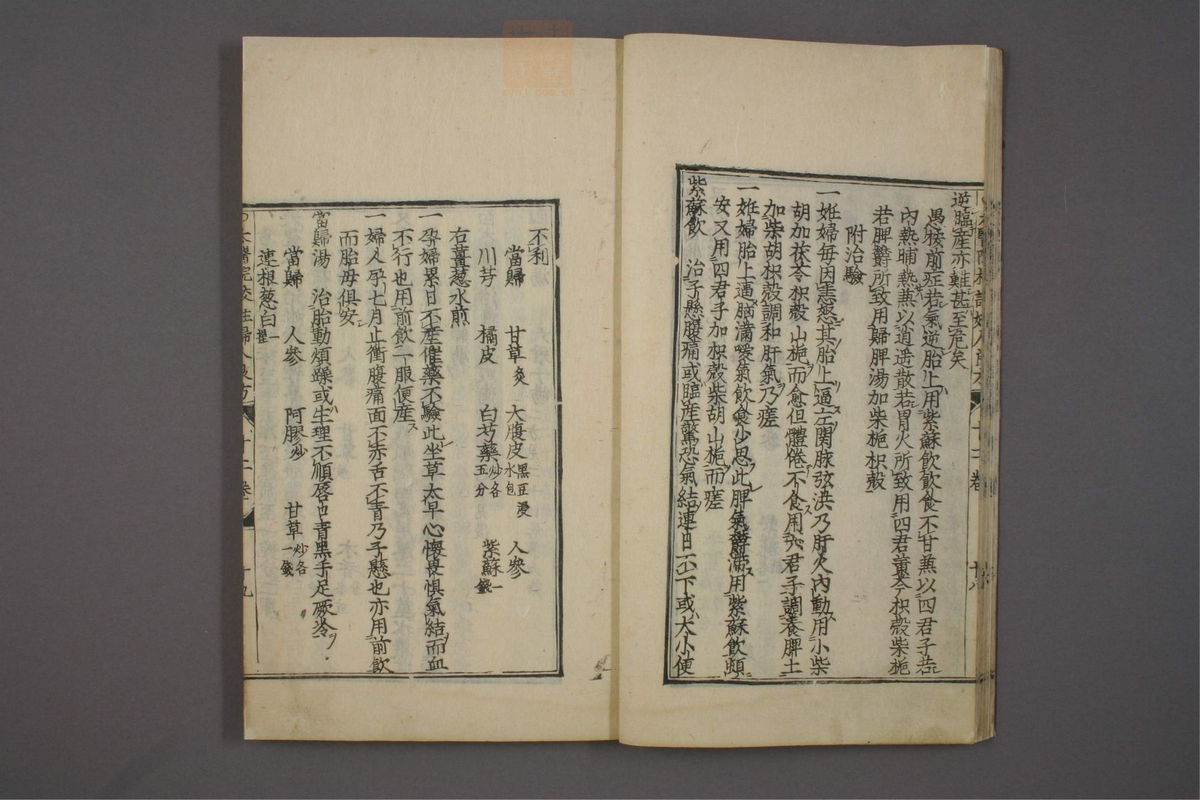 逆臨産亦難甚至危矣
愚按前症若氣逆胎上用紫蘇飲飲食不甘兼以四君子若
內熱晡熱兼以逍遥散若胃火所致用四君黃芩枳殻柴梔
若脾欝所致用歸脾湯加柴梔枳殻
附治驗
一妊婦每因恚怒其胎上逼左関脉弦洪乃肝火內動用小柴
胡加茯苓枳殻山梔而愈但體倦不食用六君子調養脾土
加柴胡枳殻調和肝氣乃瘥
一妊婦胎上逼胸滿噯氣飲食少思此脾氣欝滯用紫蘇飲頓
安又用四君子加枳殻柴胡山梔而瘥
紫蘇飲 治子懸腹痛或臨産驚恐氣結連日不下或大小便
不利
當歸 甘草炙 大腹皮黑豆浸水包 人參
川芎 橘皮 白芍藥炒各五分 紫蘇一錢
右薑葱水煎
一孕婦累日不産催藥不驗此坐草太早心懷畏惧氣結而血
不行也用前飲一服便産
一婦人孕七月上衝腹痛面不赤舌不青乃子懸也亦用前飲
而胎母俱安
當歸湯 治胎動煩躁或生理不順唇口青黑手足厥冷
當歸 人參 阿膠炒 甘草炒各一錢
連根葱白一握
太醫院校註婦人良方 十二卷 十九